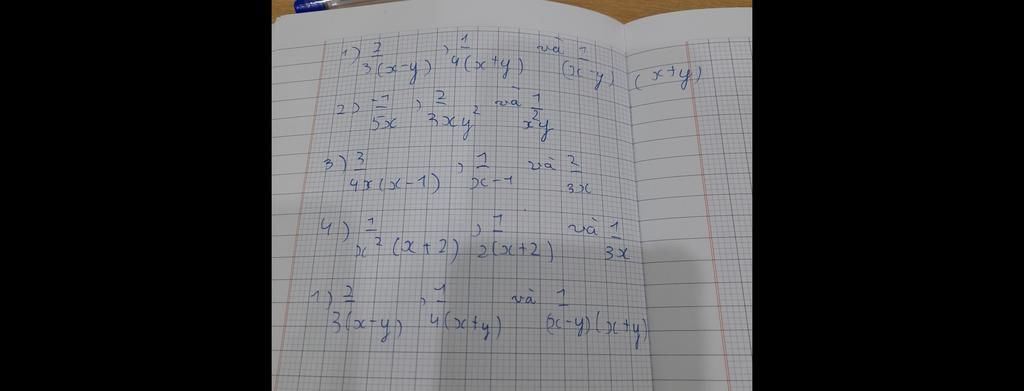 1) 2/3(x-y) , 1/4(x+y) và 1/(x-y) (x+y)
2) -1/5x , 2/3xy² và 1/x²y
3) 3/4x(x-1) , 1/x-1 và 2/3x
4) 1/x²(x+2) , 1/2(x+2) và 1/3x
1) 2/3(x-y) , 1/4(x+y) và 1/(x-y)(x+y)